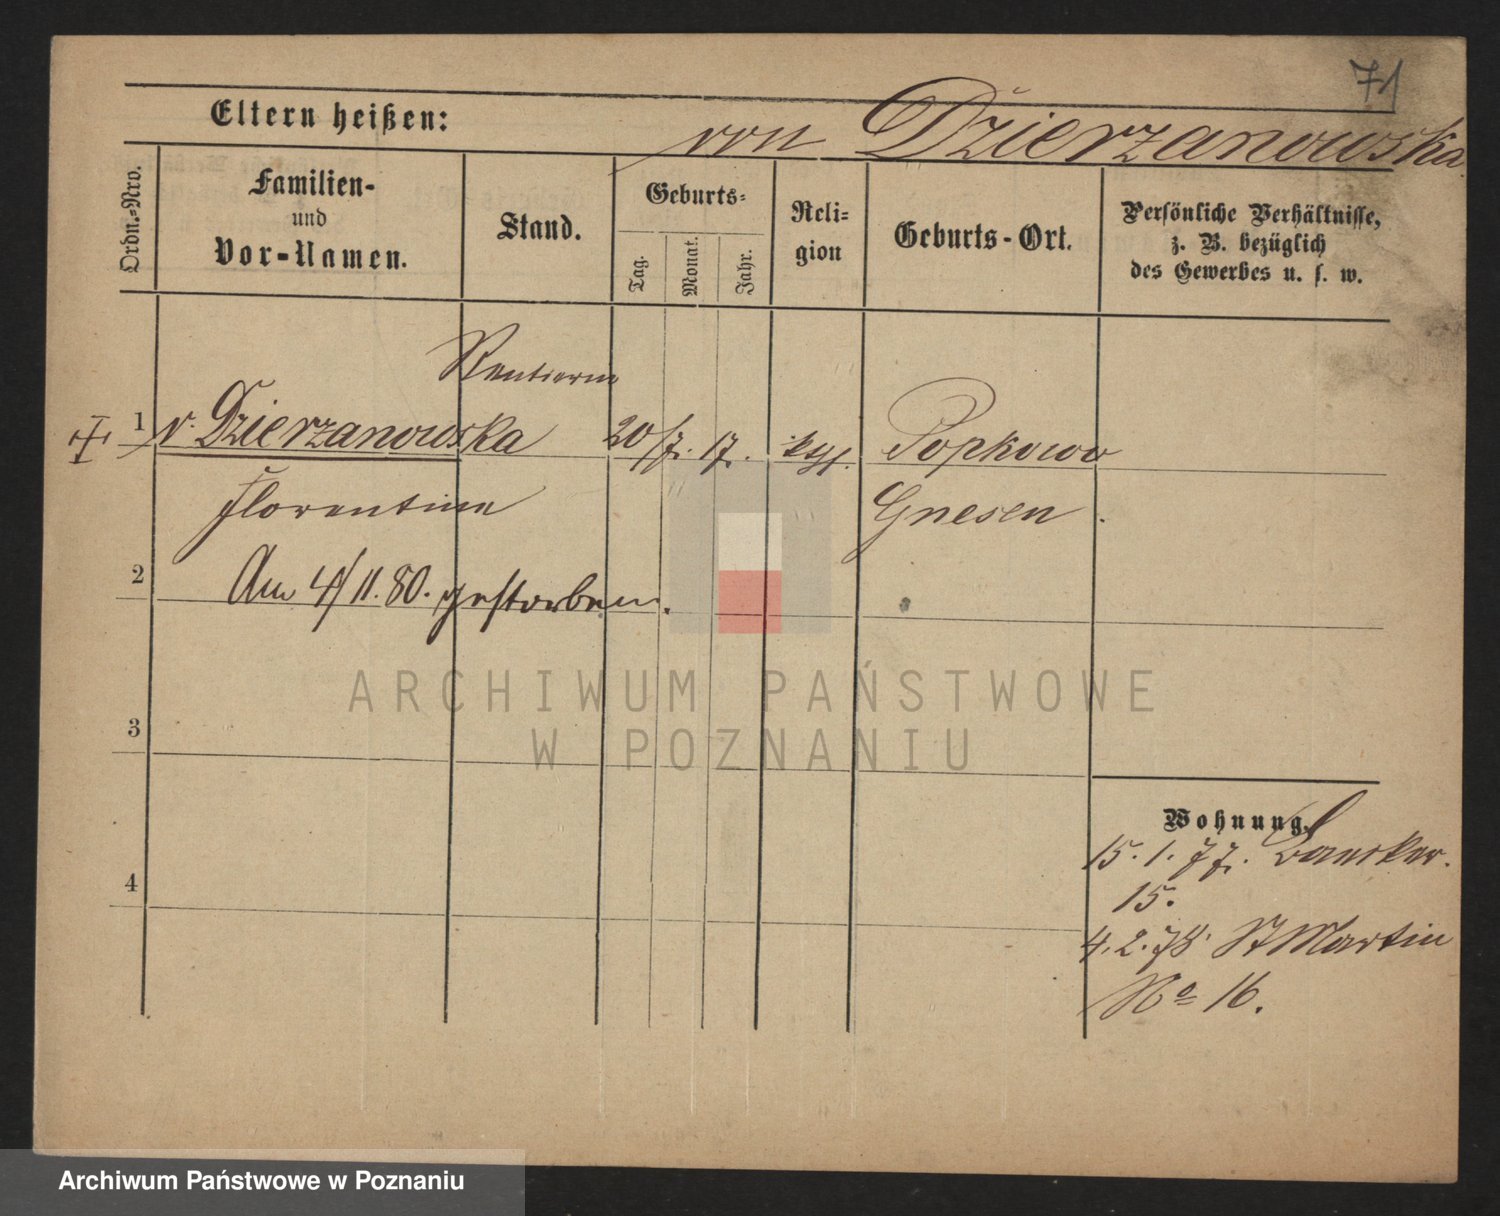 71
Eltern heißen:
von Dzierzanowska
Ordn.-Nro.
Familien-
und
Vor-Namen.
Stand.
Geburts-
Tag.
Monat.
Jahr.
Reli-
gion
Geburts-Ort.
Persönliche Verhältnisse,
z. B. bezüglich
des Gewerbes u. s. w.
Rentierin
1 v. Dzierzanowska 20/7. 17. kath. Popkowo
Florentine Gnesen.
2 Am 4/11. 80. gestorben.
ARCHIWUM PAŃSTWOWE
W POZNANIU
3
4
Wohnung.
15. 1. 77.
15.
4. 2. 78. St Martin
No 16.
Archiwum Państwowe w Poznaniu